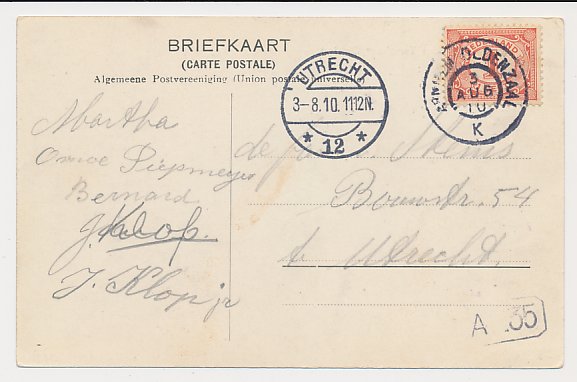 BRIEFKAART
(CARTE POSTALE)
Algemeene Postvereeniging (Union postale universelle)
UTRECHT
3-8.10.1112N.
* 12 *
OLDENZAAL
3
AUG
10
K
NEDERLAND
Martha
Piepmeyer
Bernard
J. Klop
J. Klop jr
de
Bouwstr. 54
te Utrecht.
A 35